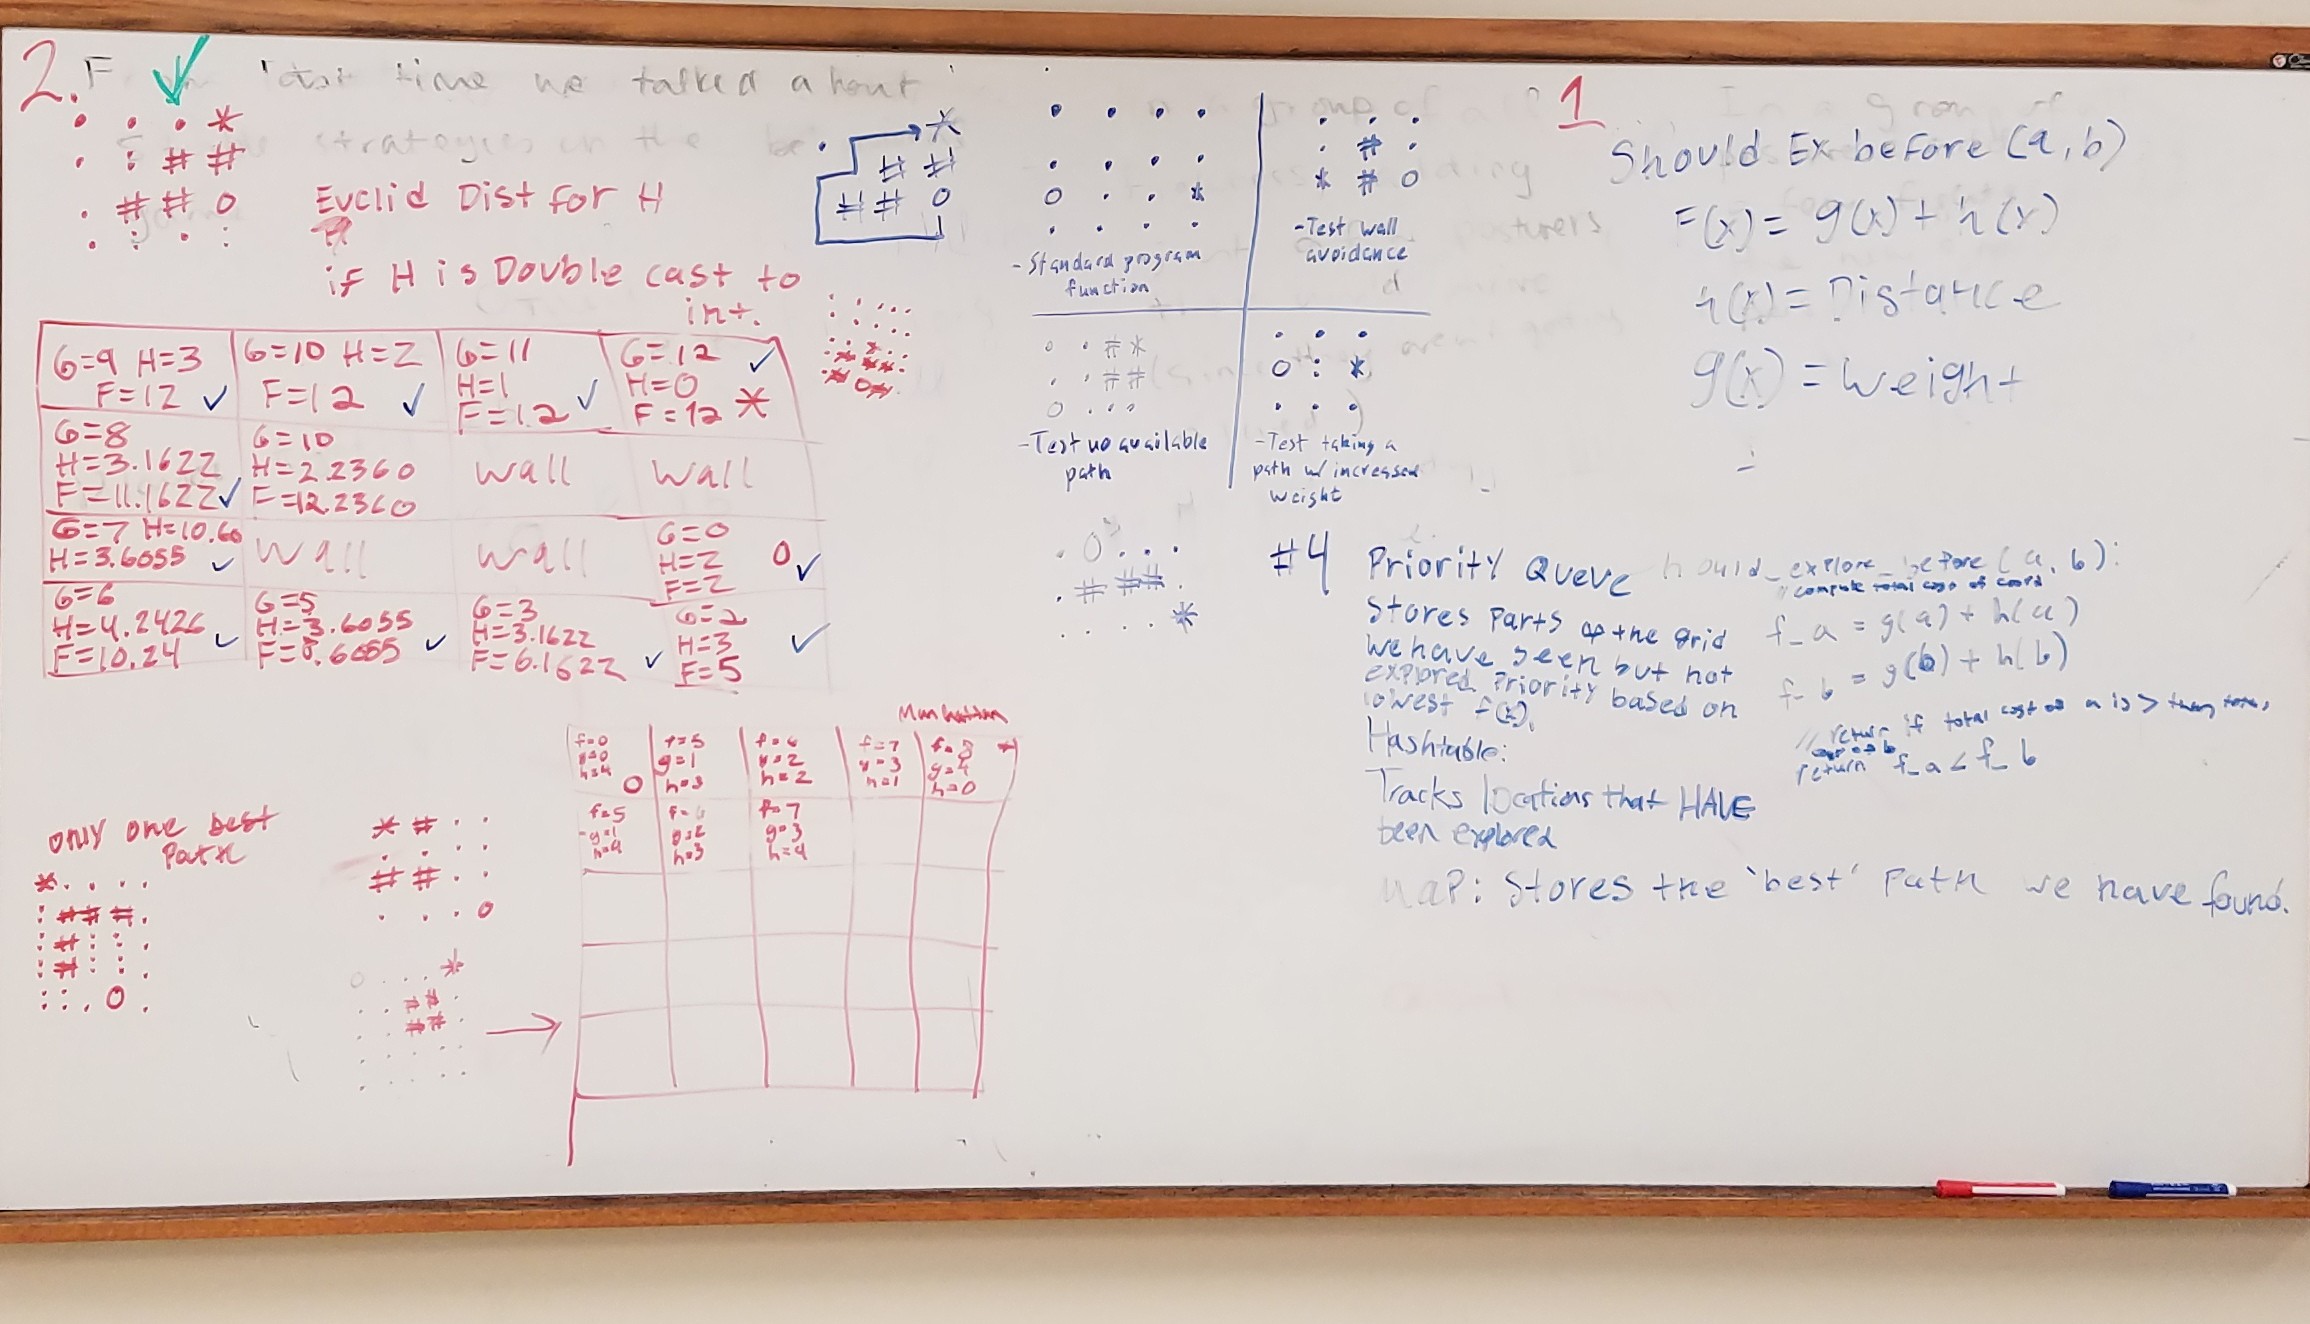 2.
last time we talked about
strategies in the
. . . *
. : # #
. # # O
. : . :
Euclid Dist for H
if H is Double cast to
int.
*
# #
# # O
G=9 H=3
F=12 ✓
G=10 H=2
F=12 ✓
G=11
H=1
F=12 ✓
G=12 ✓
H=0
F=12 *
G=8
H=3.1622
F=11.1622 ✓
G=10
H=2.2360
F=12.2360
wall
wall
G=7 H=10.60
H=3.6055 ✓
wall
wall
G=0
H=2
F=2
O ✓
G=6
H=4.2426
F=10.24 ✓
G=5
H=3.6055
F=8.6055 ✓
G=3
H=3.1622
F=6.1622 ✓
G=2
H=3
F=5 ✓
. . . .
. . . .
O . . *
. . . .
-Standard program
function
. . .
. # .
* # O
-Test wall
avoidance
O . # *
. . # #
O . . .
-Test no available
path
. . .
O : *
. . .
-Test taking a
path w/ increased
weight
. O . . .
. # # # .
. . . . *
Manhattan
f=0
g=0
h=4
O
f=5
g=1
h=3
f=6
g=2
h=2
f=7
g=3
h=1
f=8
g=4
h=0
*
f=5
g=1
h=4
f=6
g=2
h=3
f=7
g=3
h=4
only one best
path
* . . . .
: # # # .
: # : : .
: # : : .
: : . O .
* # . .
. . . .
# # . .
. . . O
O . . . *
. . # # .
. . # # .
. . . . .
. . . . .
1
Should Ex before (a, b)
F(x) = g(x) + h(x)
h(x) = Distance
g(x) = Weight
#4 Priority Queue
Stores parts of the grid
we have seen but not
explored. Priority based on
lowest f(x).
Hashtable:
Tracks locations that HAVE
been explored
Map: Stores the 'best' path we have found.
hould_explore_before (a, b):
// compute total cost of coord
f_a = g(a) + h(a)
f_b = g(b) + h(b)
// return if total cost of a is > than total
return f_a < f_b